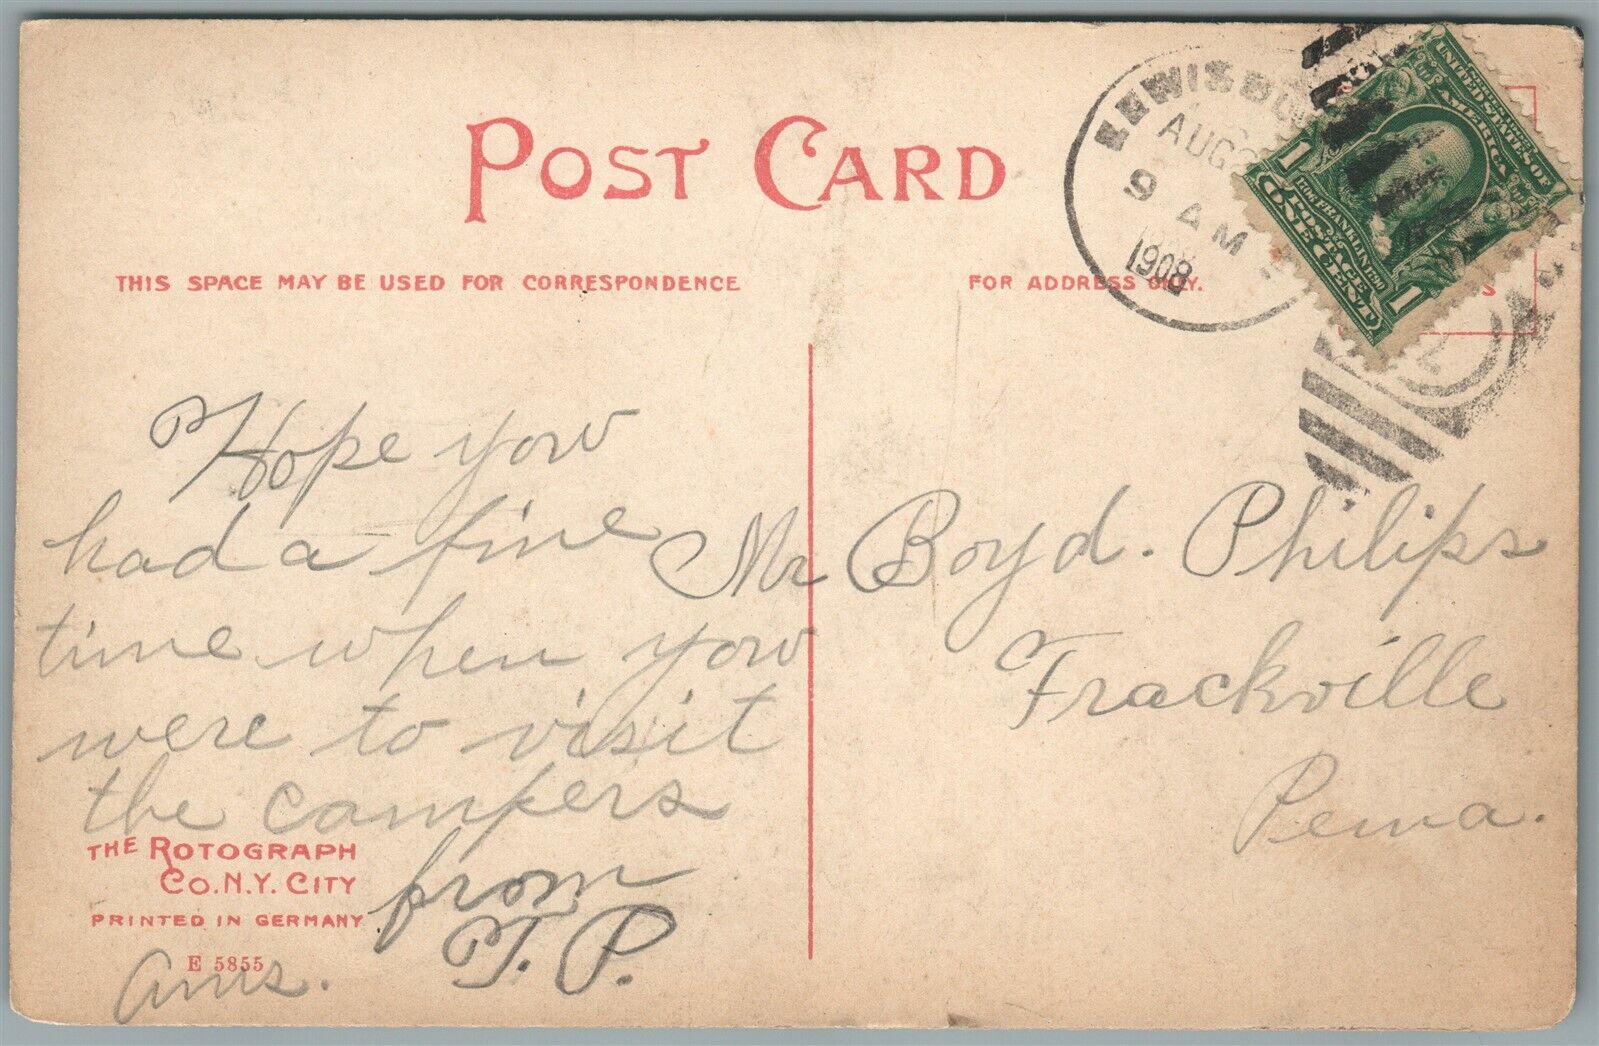 POST CARD
THIS SPACE MAY BE USED FOR CORRESPONDENCE
FOR ADDRESS ONLY.
AUG
9 AM
1908
UNITED STATES OF AMERICA
1706 FRANKLIN 1790
POSTAGE
1 ONE CENT 1
2
Hope you
had a fine
time when you
were to visit
the campers
from
T. P.
Ans.
Mr Boyd. Philips
Frackville
Penna.
THE ROTOGRAPH
CO. N.Y. CITY
PRINTED IN GERMANY
E 5855